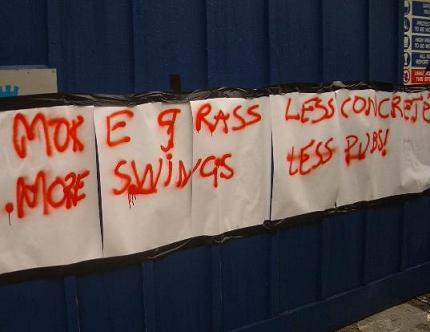 MORE gRASS LESS CONCRETE
.MORE SWiNGS LESS PUBS!